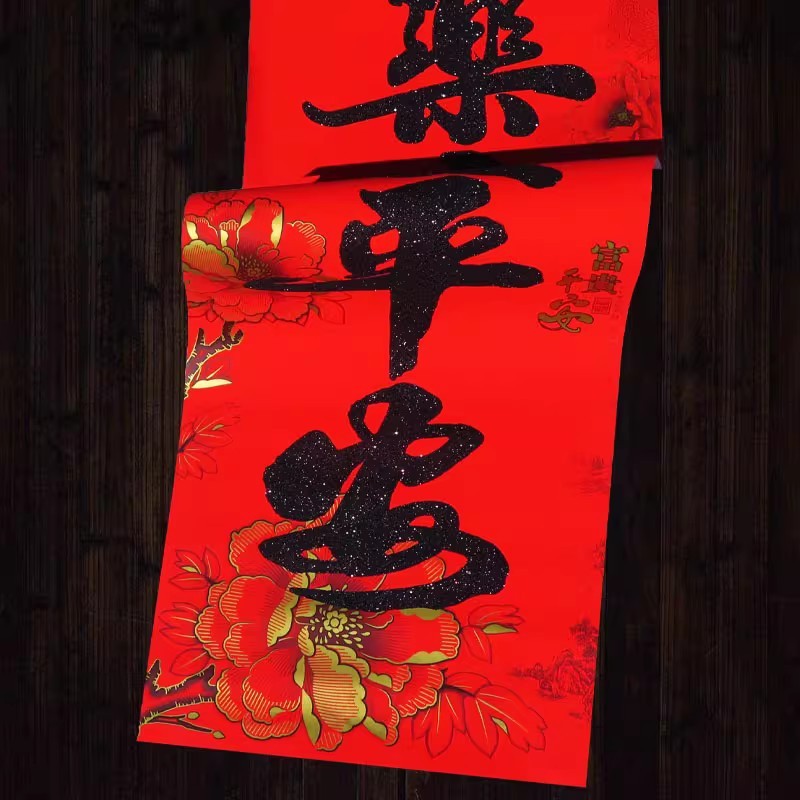 樂
平
安
富貴
平安